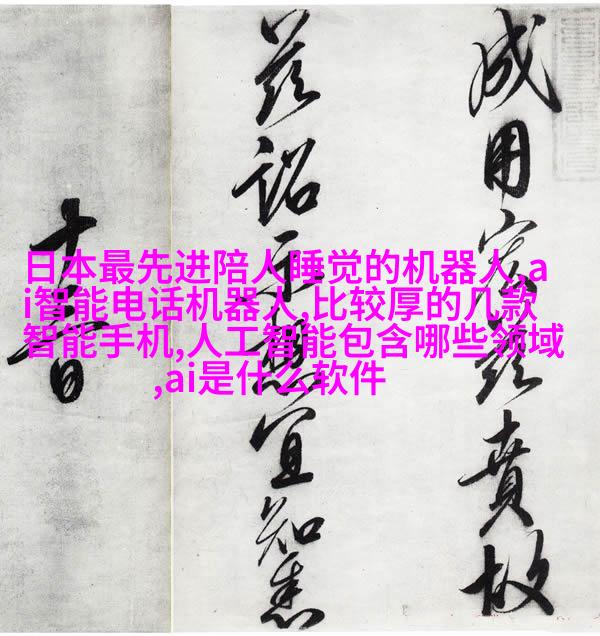 日本最先进陪人睡觉的机器人,a
i智能电话机器人,比较厚的几款
智能手机,人工智能包含哪些领域
,ai是什么软件
成用茲賁故
茲詔示想宜知悉